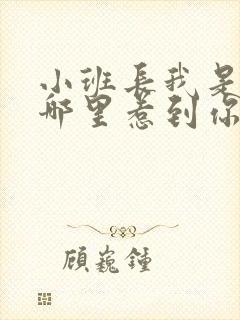 小班长我是
哪里惹到你
顾巍鍾